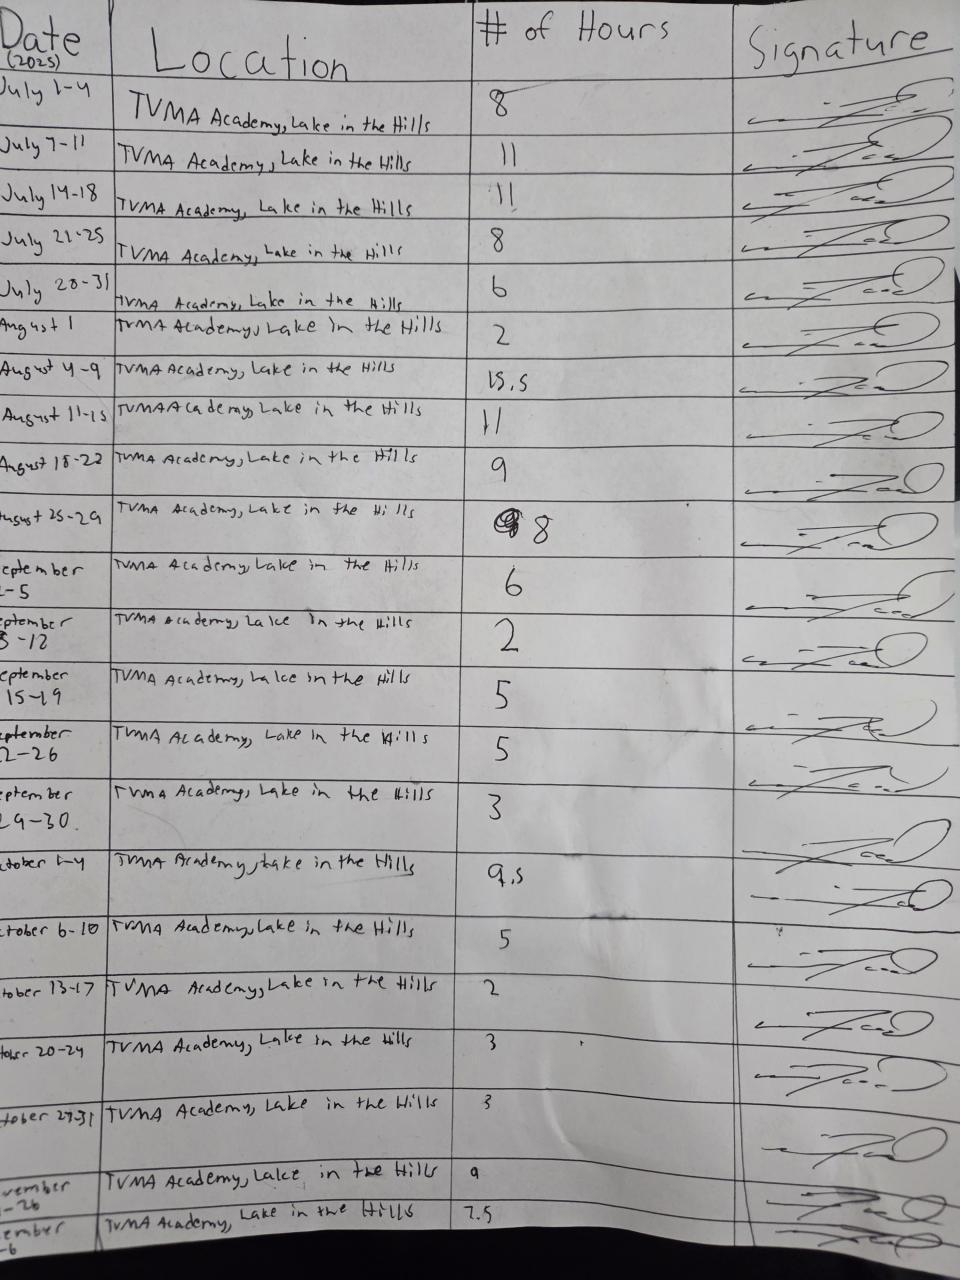 Date Location # of Hours Signature
(2025)
July 1-4 TVMA Academy, Lake in the Hills 8
July 7-11 TVMA Academy, Lake in the Hills 11
July 14-18 TVMA Academy, Lake in the Hills 11
July 21-25 TVMA Academy, Lake in the Hills 8
July 28-31 TVMA Academy, Lake in the Hills 6
August 1 TVMA Academy, Lake in the Hills 2
August 4-9 TVMA Academy, Lake in the Hills 15.5
August 11-15 TVMA Academy, Lake in the Hills 11
August 18-22 TVMA Academy, Lake in the Hills 9
ugust 25-29 TVMA Academy, Lake in the Hills 8
eptember TVMA Academy, Lake in the Hills 6
-5
eptember TVMA Academy, Lake in the Hills 2
8-12
eptember TVMA Academy, Lake in the Hills 5
15-19
eptember TVMA Academy, Lake in the Hills 5
2-26
eptember TVMA Academy, Lake in the Hills 3
29-30
ctober 1-4 TVMA Academy, Lake in the Hills 9.5
ctober 6-10 TVMA Academy, Lake in the Hills 5
tober 13-17 TVMA Academy, Lake in the Hills 2
tober 20-24 TVMA Academy, Lake in the Hills 3
tober 27-31 TVMA Academy, Lake in the Hills 3
vember TVMA Academy, Lake in the Hills 9
-26
ember TVMA Academy, Lake in the Hills 7.5
-6